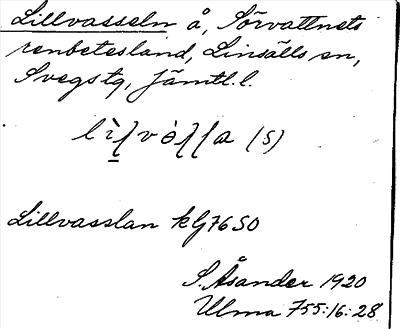 Lillvasseln å, Sörvattnets
renbetesland, Linsälls sn,
Svegs tg, Jämtl. l.
(s)
Lillvasslan kG76SO
S. Åsander 1920
Ulma 755:16:28